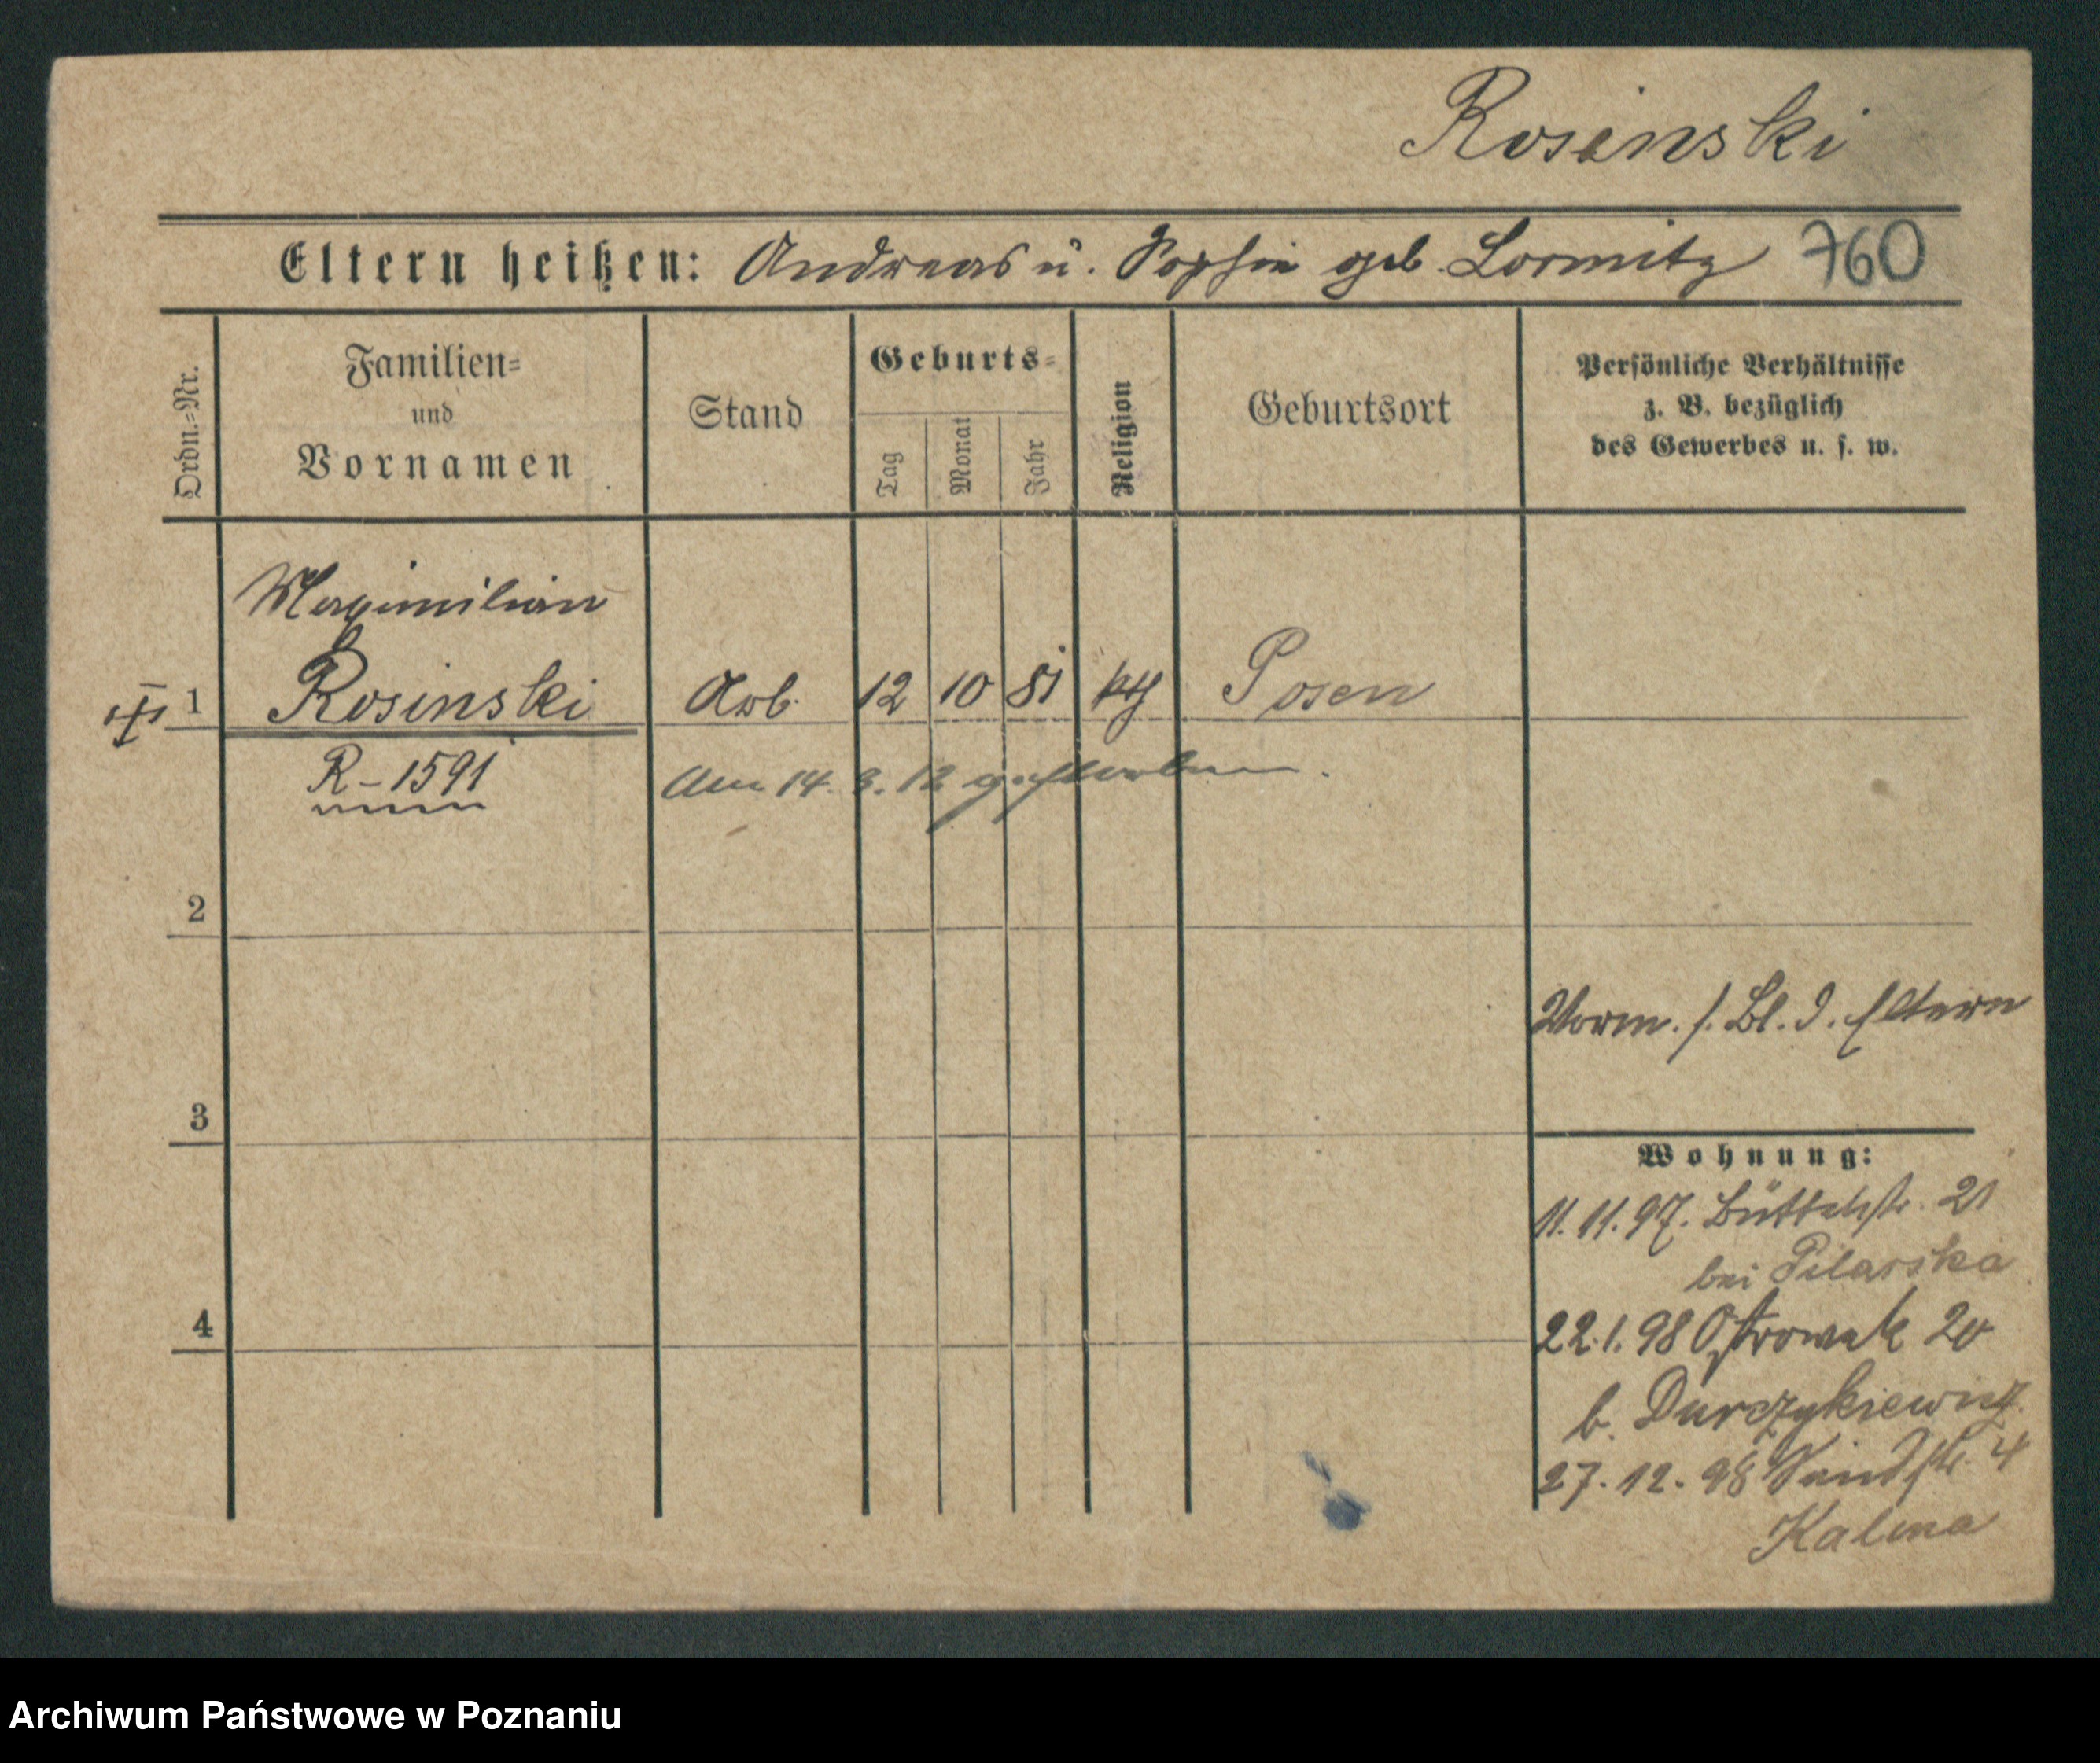 Rosinski
Eltern heißen: Andreas u. Sophie geb. Lormitz 760
Ordn.=Nr.
Familien=
und
Vornamen
Stand
Geburts=
Tag Monat Jahr
Religion
Geburtsort
Persönliche Verhältnisse
z. B. bezüglich
des Gewerbes u. s. w.
Maximilian
1 Rosinski Arb. 12 10 81 kth Posen
R-1591 Am 14. 3. 12 gestorben.
2
Vorm. s. Bl. d. Eltern
3
Wohnung:
11.11.97. Büttelstr. 21
bei Pilarska
22.1.98 Ostrowek 20
4
b. Durczykiewicz.
27.12.98 Sandstr. 4
Kalma
Archiwum Państwowe w Poznaniu